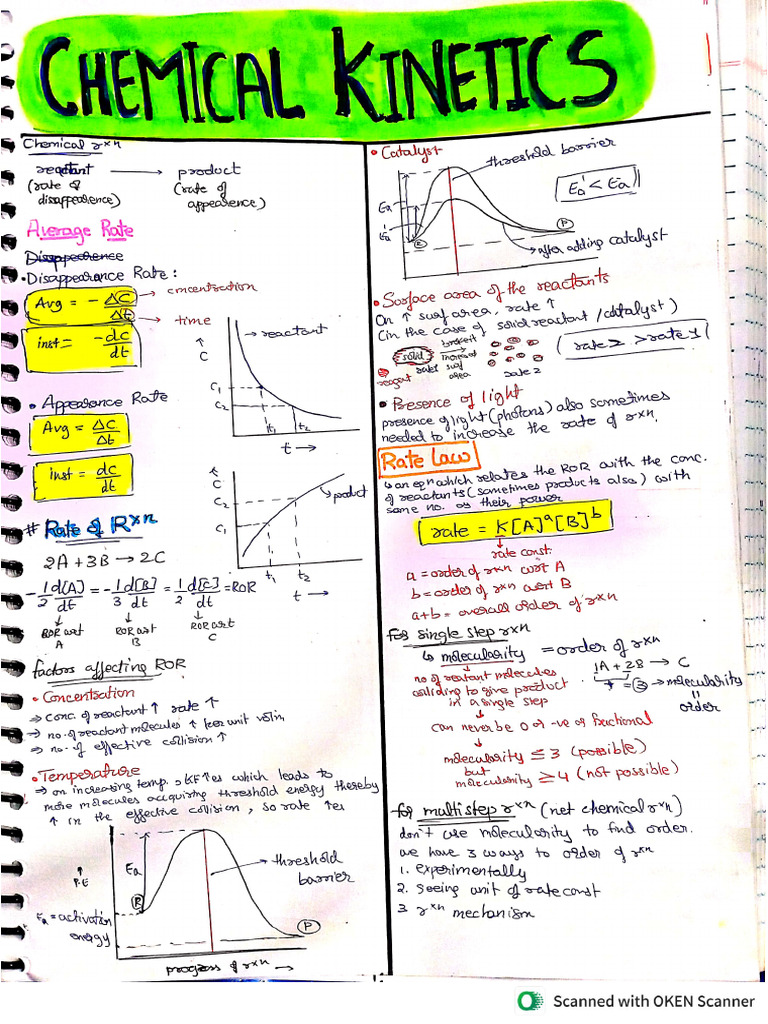 CHEMICAL KINETICS
Chemical rxn
reactant → product
(rate of disappearence) (rate of appearence)
Average Rate
Disappearence
• Disappearance Rate:
Avg = - ΔC/Δt
→ concentration
→ time
inst = -dc/dt
→ reactant
↑ C
C1
C2
t1 t2
t →
• Appearance Rate
Avg = ΔC/Δt
inst = dc/dt
↑ C
C2
C1
→ product
t1 t2
t →
# Rate of Rxn
2A + 3B → 2C
-1/2 d[A]/dt = -1/3 d[B]/dt = 1/2 d[C]/dt = ROR
↓ ↓ ↓
ROR wrt A ROR wrt B ROR wrt C
factors affecting ROR
• Concentration
⇒ conc. of reactant ↑ rate ↑
⇒ no. of reactant molecules ↑ per unit volm
⇒ no. of effective collision ↑
• Temperature
⇒ on increasing temp, KE ↑es which leads to
more molecules accquring threshold energy thereby
↑ in the effective collision, so rate ↑es
↑ P.E
Ea
R
→ threshold barrier
P
Ea = activation energy
progress of rxn →
• Catalyst
threshold barrier
Ea' < Ea
Ea
Ea'
R
P
→ after adding catalyst
• Surface area of the reactants
On ↑ surf area, rate ↑
(in the case of solid reactant / catalyst)
solid
increased surf area
reagent rate 1
rate 2
(rate 2 > rate 1)
• Presence of light
presence of light (photons) also sometimes
needed to increase the rate of rxn.
Rate Law
is an eqn which relates the ROR with the conc.
of reactants (sometimes products also) with
same no. as their power
rate = K[A]ᵃ[B]ᵇ
↓
rate const.
a = order of rxn wrt A
b = order of rxn wrt B
a+b = overall order of rxn
for single step rxn
↳ molecularity = order of rxn
no of reactant molecules
colliding to give product
in a single step
1A + 2B → C
= 3 → molecularity
||
order
can never be 0 or -ve or fractional
↓
molecularity ≤ 3 (possible)
but
molecularity ≥ 4 (not possible)
for multistep rxn (net chemical rxn)
don't use molecularity to find order.
we have 3 ways to order of rxn
1. experimentally
2. seeing unit of rate const
3 rxn mechanism
Scanned with OKEN Scanner